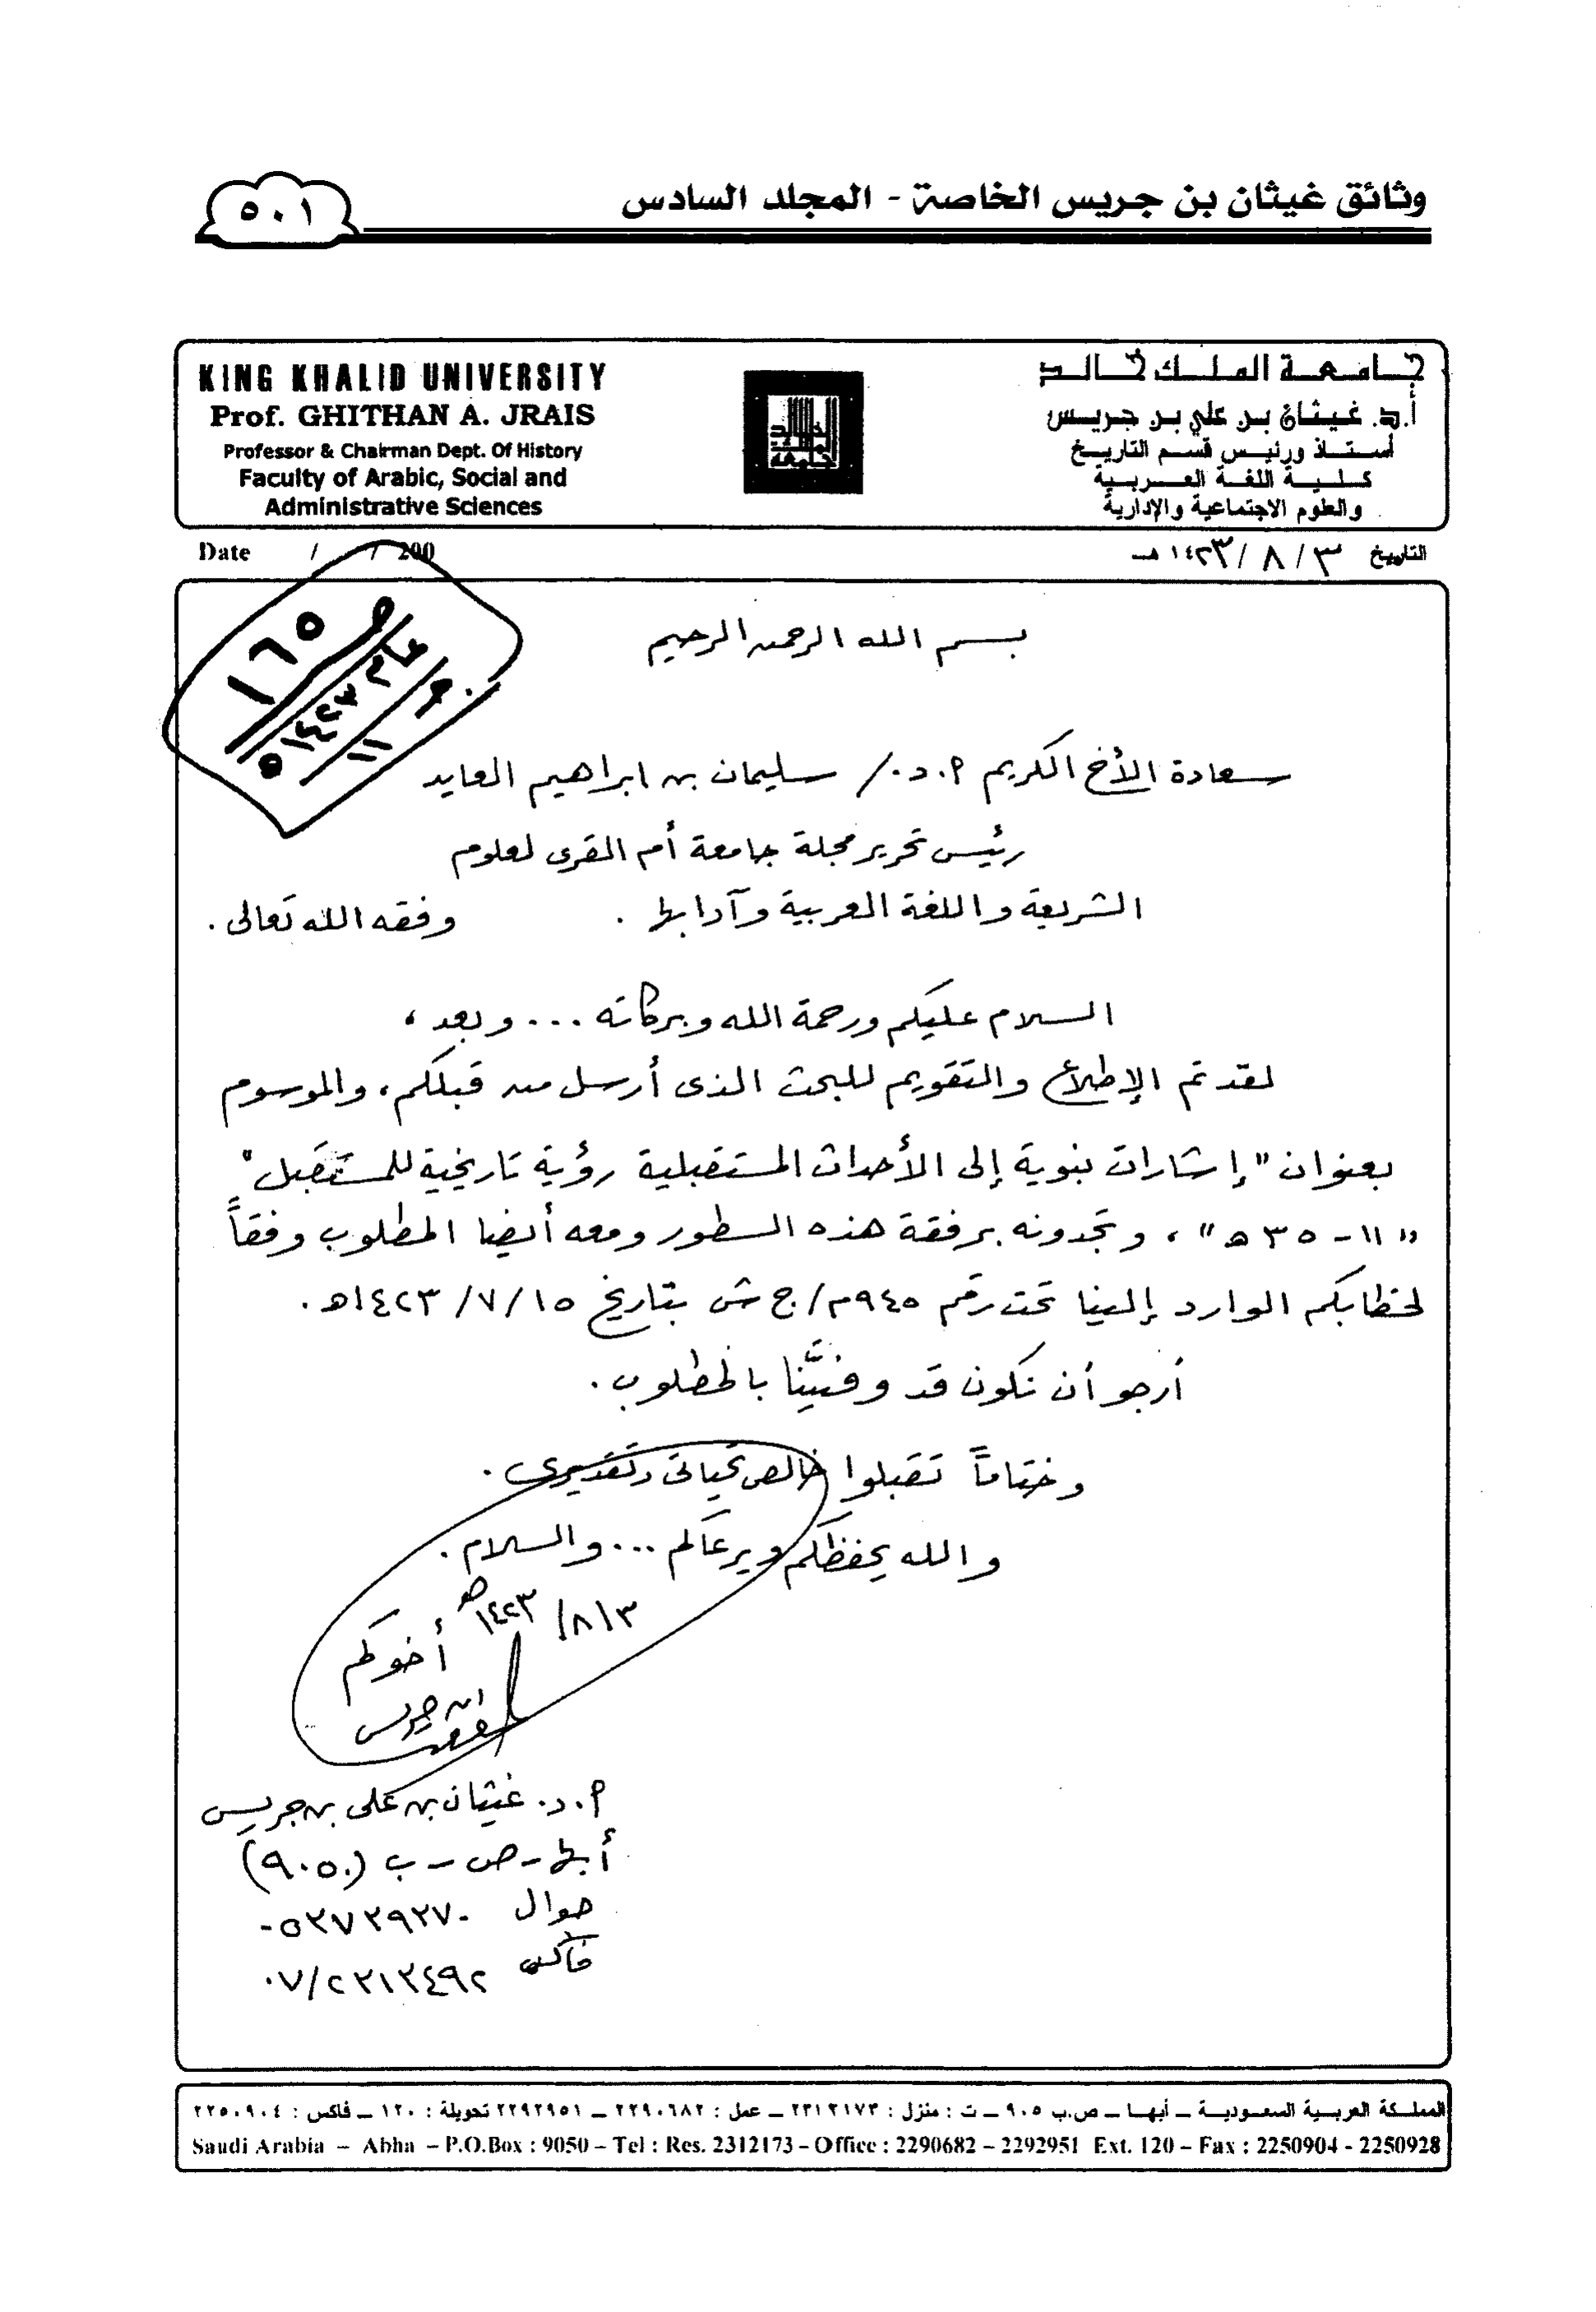 وثائق غيثان بن جريس الخاصة - المجلد السادس
٥٠١
KING KHALID UNIVERSITY
Prof. GHITHAN A. JRAIS
Professor & Chairman Dept. Of History
Faculty of Arabic, Social and
Administrative Sciences
جامعة الملك خالد
أ.د. غيثان بن علي بن جريس
أستاذ ورئيس قسم التاريخ
كلية اللغة العربية
والعلوم الاجتماعية والإدارية
Date / / 200
التاريخ ٣ / ٨ / ١٤٢٣ هـ
١٦٥
ص
عام
١٤٢٣هـ
ج
١١
بسم الله الرحمن الرحيم
سعادة الأخ الكريم أ.د./ سليمان بن ابراهيم العايد
رئيس تحرير مجلة جامعة أم القرى لعلوم
الشريعة واللغة العربية وآدابها . وفقه الله تعالى .
السلام عليكم ورحمة الله وبركاته ... وبعد ،
لقد تم الإطلاع والتقويم للبحث الذى أرسل من قبلكم ، والموسوم
بعنوان "إشارات نبوية إلى الأحداث المستقبلية رؤية تاريخية للمستقبل"
"١١-٣٥هـ" ، وتجدونه برفقة هذه السطور ومعه أيضا المطلوب وفقاً
لخطابكم الوارد إلينا تحت رقم ٩٤٥م/ج ش بتاريخ ١٥/٧/١٤٢٣هـ .
أرجو أن نكون قد وفيَّنا بالمطلوب .
وختاماً تقبلوا خالص تحياتى وتقديرى .
والله يحفظكم ويرعاكم ... والسلام .
٣/٨/١٤٢٣هـ
أخوكم
ابن جريس
أ.د. غيثان بن على بن جريس
أبها - ص - ب (٩٠٥٠)
جوال ٠٥٣٧٣٩٣٧٠
فاكس ٠٧/٢٣١٣٤٩٢
المملكة العربية السعودية ـ أبهـا ـ ص.ب ٩٠٥ ـ ت : منزل : ٢٣١٢١٧٣ ـ عمل : ٢٢٩٠٦٨٢ ـ ٢٢٩٢٩٥١ تحويلة : ١٢٠ ـ فاكس : ٢٢٥٠٩٠٤
Saudi Arabia – Abha – P.O.Box : 9050 – Tel : Res. 2312173 – Office : 2290682 – 2292951 Ext. 120 – Fax : 2250904 - 2250928